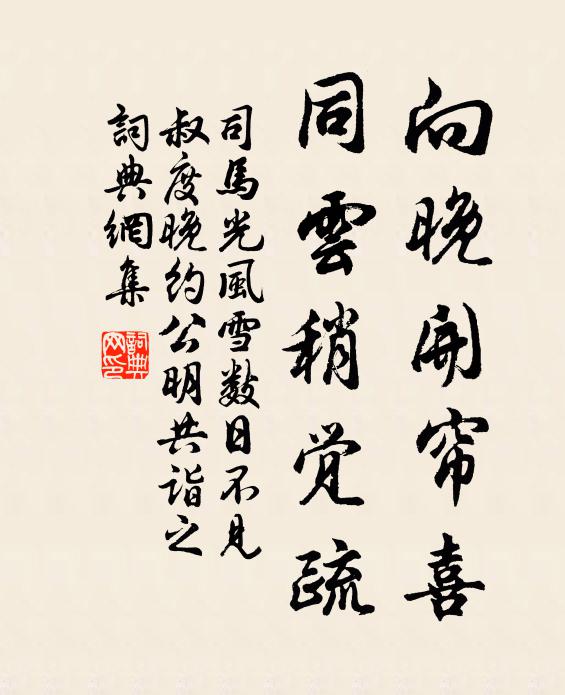 向晚開帘喜
同雲稍觉疏
司馬光風雪数日不見
叔度晚約公明共詣之
詞典網集
詞典
网印